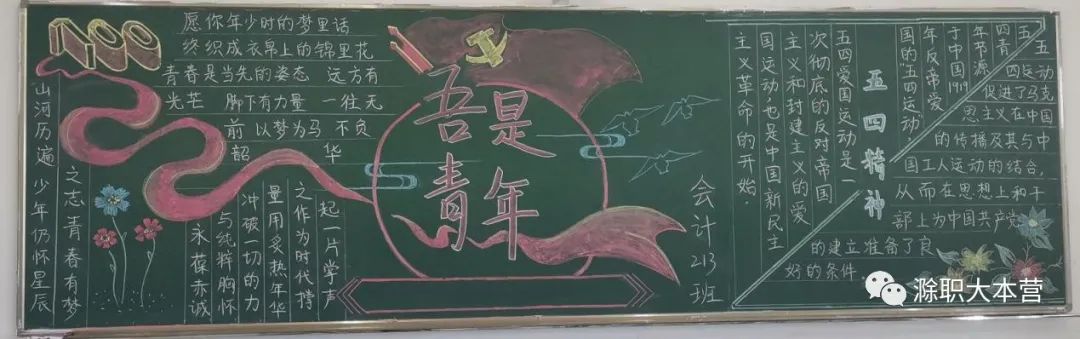 100
愿你年少时的梦里话
终织成衣帛上的锦里花
青春是当先的姿态 远方有
光芒 脚下有力量 一往无
前 以梦为马 不负
韶 华
山河历遍少年仍怀星辰
之志青春有梦
永葆赤诚
与纯粹胸怀
冲破一切的力
量用炙热年华
之作为时代撑
起一片学声
吾是
青年
会计213班
五四精神
五四青年节源
于中国1919
年反帝爱
国的"五四运动"
五四爱国运动是一
次彻底的反对帝国
主义和封建主义的爱
国运动,也是中国新民主
主义革命的开始.
五四运动
促进了马克
思主义在中国
的传播及其与中
国工人运动的结合,
从而在思想上和干
部上为中国共产党
的建立准备了良
好的条件
滁职大本营